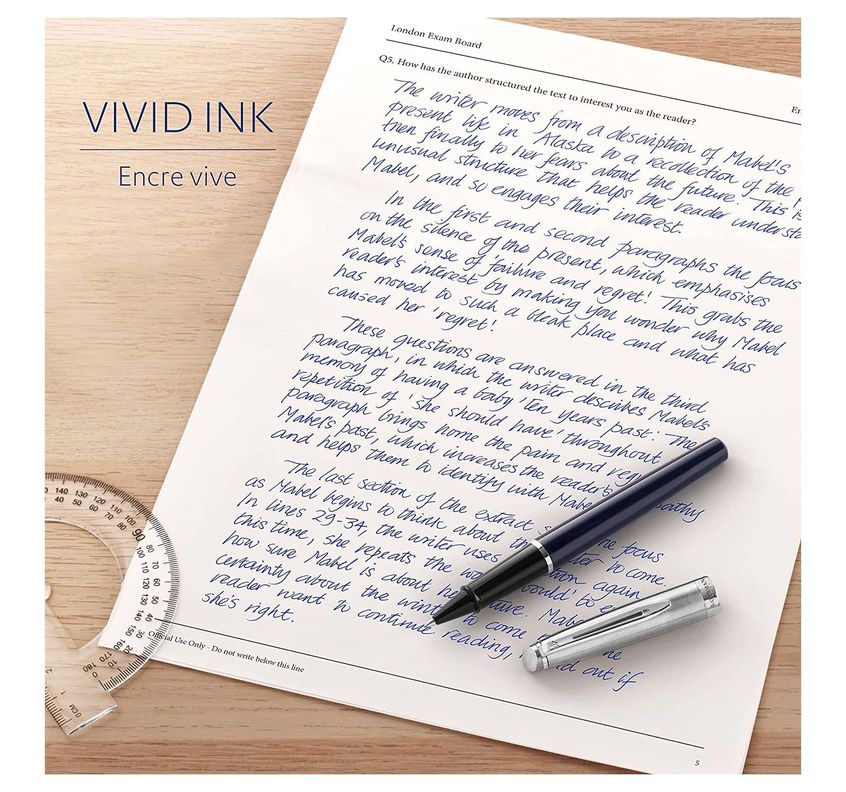 VIVID INK
Encre vive
London Exam Board
Q5. How has the author structured the text to interest you as the reader?
The writer moves from a description of Mabel's
present life in Alaska to a recollection of the
then finally to her fears about the future. This is
unusual structure that helps the reader understa
Mabel, and so engages their interest.
In the first and second paragraphs the focus
on the silence of the present, which emphasises
Mabel's sense of 'failure and regret! This grabs the
reader's interest by making you wonder why Mabel
has moved to such a bleak place and what has
caused her 'regret!
These questions are answered in the third
paragraph, in which the writer describes Mabel's
memory of having a baby 'Ten years past'. The
repetition of 'she should have' throughout
paragraph brings home the pain and reg
Mabel's past, which increases the reader's pathy
and helps them to identify with Mabe
The last section of the extract s he focus
as Mabel begins to think about th ter to come.
In lines 29-34, the writer uses tion again
this time, she repeats the wo would' to e
how sure Mabel is about he ture. Mabe
certainty about the wint to come
reader want to continue reading, d out if
she's right.
Official Use Only - Do not write below this line
5
140 130 120 110 100 90 80 70 60 50 40 30 20 10 0
40 50 60 70 80 100 110 120 130 140 150 160 170 180
cm
1
2